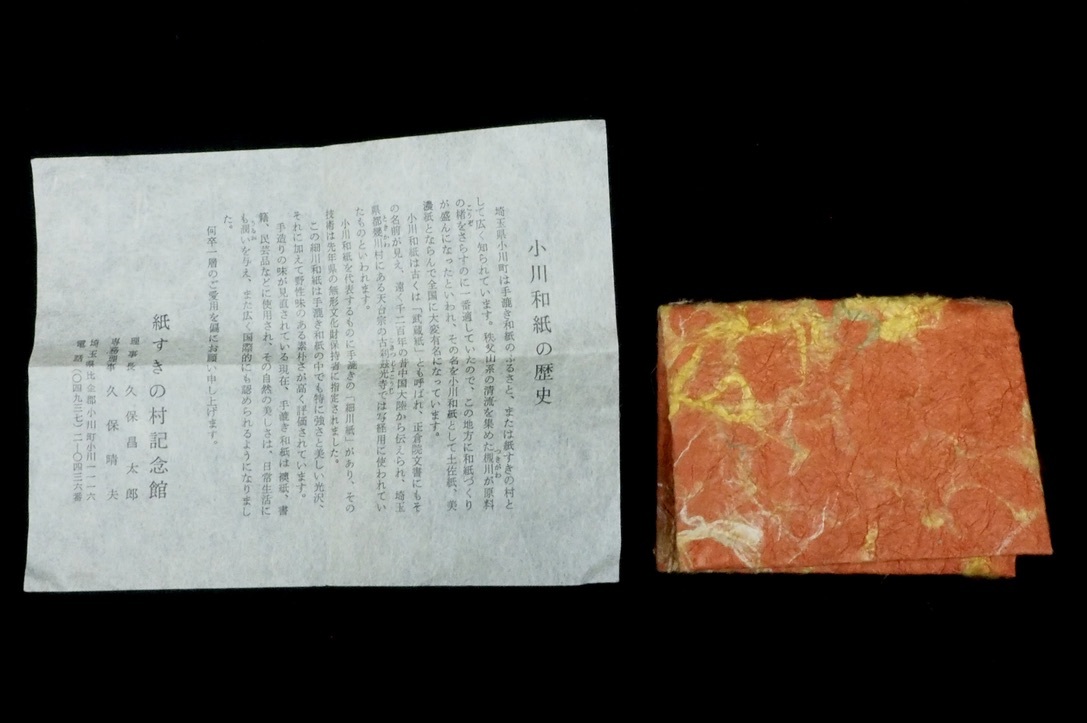 小川和紙の歴史
埼玉県小川町は手漉き和紙のふるさと、または紙すきの村と
して広く知られています。秩父山系の清流を集めた槻川が原料
の楮をさらすのに一番適していたので、この地方に和紙づくり
が盛んになったといわれ、その名を小川和紙として土佐紙、美
濃紙とならんで全国に大変有名になっています。
小川和紙は古くは「武蔵紙」とも呼ばれ、正倉院文書にもそ
の名前が見え、遠く千二百年の昔中国大陸から伝えられ、埼玉
県都幾川村にある天台宗の古刹慈光寺では写経用に使われてい
たものといわれます。
小川和紙を代表するものに手漉きの「細川紙」があり、その
技術は先年県の無形文化財保持者に指定されました。
この細川和紙は手漉き和紙の中でも特に強さと美しい光沢、
それに加えて野性味のある素朴さが高く評価されています。
手造りの味が見直されている現在、手漉き和紙は襖紙、書
籍、民芸品などに使用され、その自然の美しさは、日常生活に
も潤いを与え、また広く国際的にも認められるようになりまし
た。
何卒一層のご愛用を偏にお願い申し上げます。
紙すきの村記念館
理事長 久保昌太郎
専務理事 久保晴夫
埼玉県比企郡小川町小川一一一六
電話(〇四九三七)二－〇四三六番